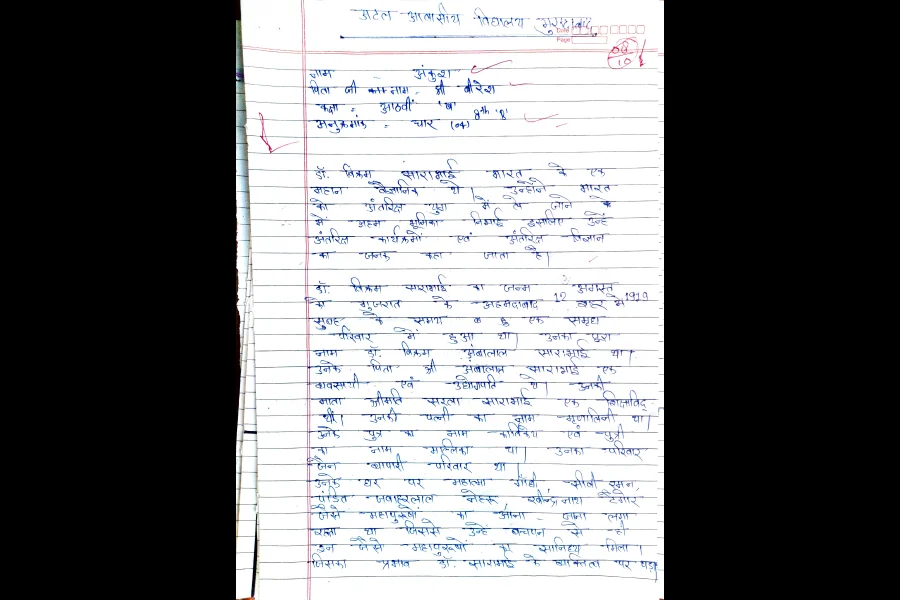 अटल आवासीय विद्यालय मुरादाबाद
Date
Page
08/10
नाम - अंकुश
पिता जी का नाम - श्री वीरेश
कक्षा = आठवीं 'ब' 8th 'B'
अनुक्रमांक = चार (04)
डॉ. विक्रम साराभाई भारत के एक
महान वैज्ञानिक थे। उन्होंने भारत
को अंतरिक्ष युग में ले जाने के
में अहम भूमिका निभाई इसलिए उन्हें
अंतरिक्ष कार्यक्रमों एवं अंतरिक्ष विज्ञान
का जनक कहा जाता है।
डॉ. विक्रम साराभाई का जन्म 12 अगस्त 1919
को गुजरात के अहमदाबाद शहर में
सुबह के समय एक समृद्ध
परिवार में हुआ था। उनका पूरा
नाम डॉ. विक्रम अंबालाल साराभाई था।
उनके पिता श्री अंबालाल साराभाई एक
व्यवसायी एवं उद्योगपति थे। उनकी
माता श्रीमति सरला साराभाई एक शिक्षाविद्
थीं। उनकी पत्नी का नाम मृणालिनी था।
उनके पुत्र का नाम कार्तिकेय एवं पुत्री
का नाम मल्लिका था। उनका परिवार
जैन व्यापारी परिवार था।
उनके घर पर महात्मा गाँधी सीवी रमन,
पंडित जवाहरलाल नेहरू रवीन्द्र नाथ टैगोर
जैसे महापुरुषों का आना जाना लगा
रहता था जिससे उन्हें बचपन से ही
इन जैसे महापुरुषों का सानिध्य मिला।
जिसका प्रभाव डॉ. साराभाई के व्यक्तित्व पर पड़ा